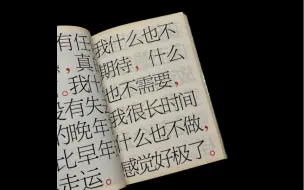 有任
真
。我
没有失
的晚年
比早年
走运。
我什么也不
期待，什么
也不需要，
我很长时间
什么也不做，
感觉好极了。